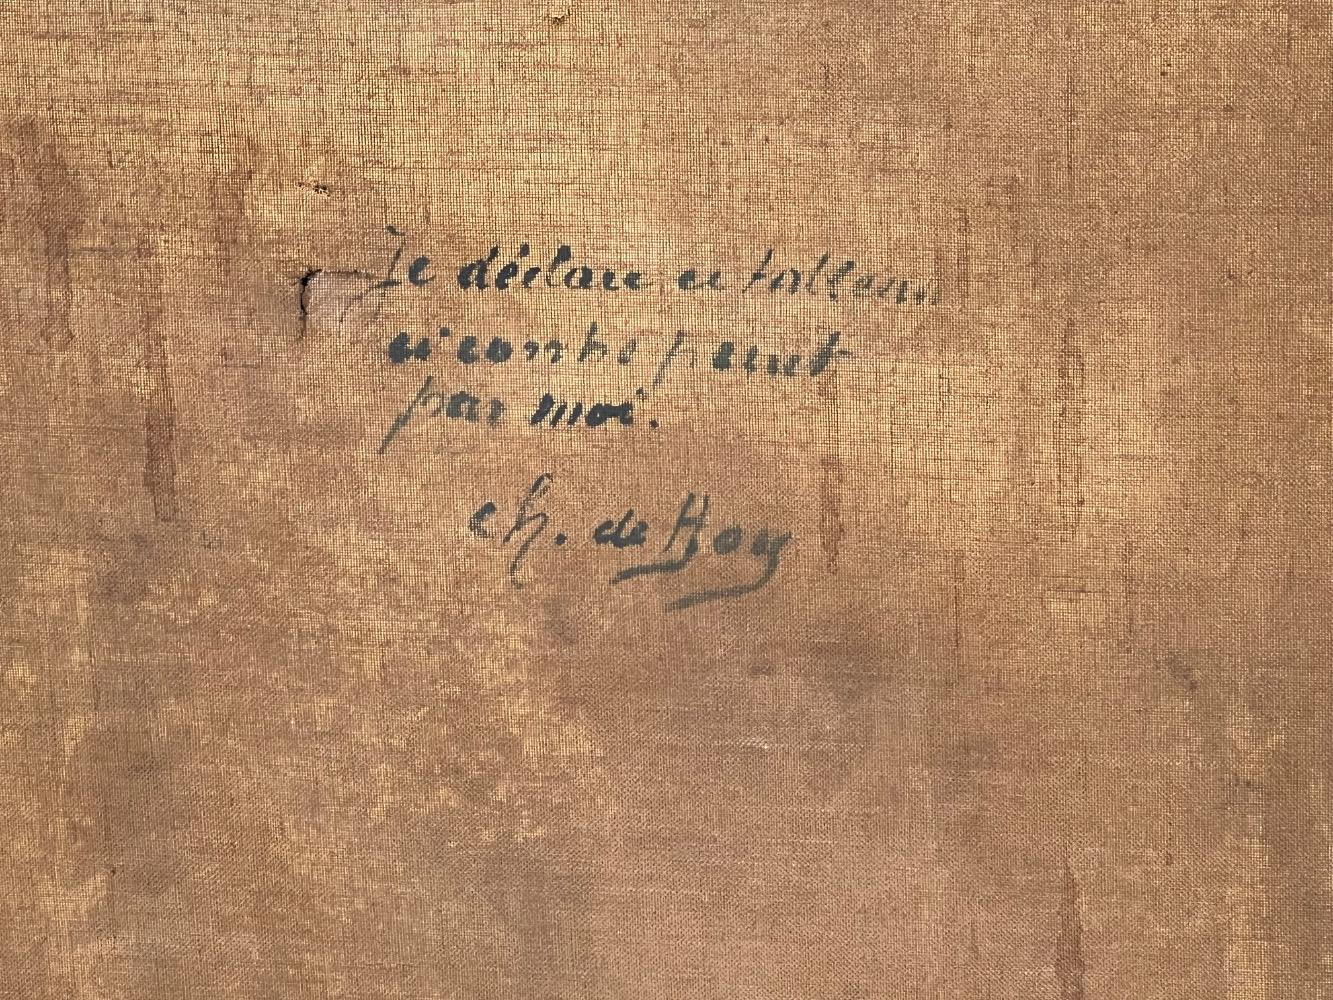 Je déclare ce tableau
ci contre peint
par moi.
Ch. de Hoy